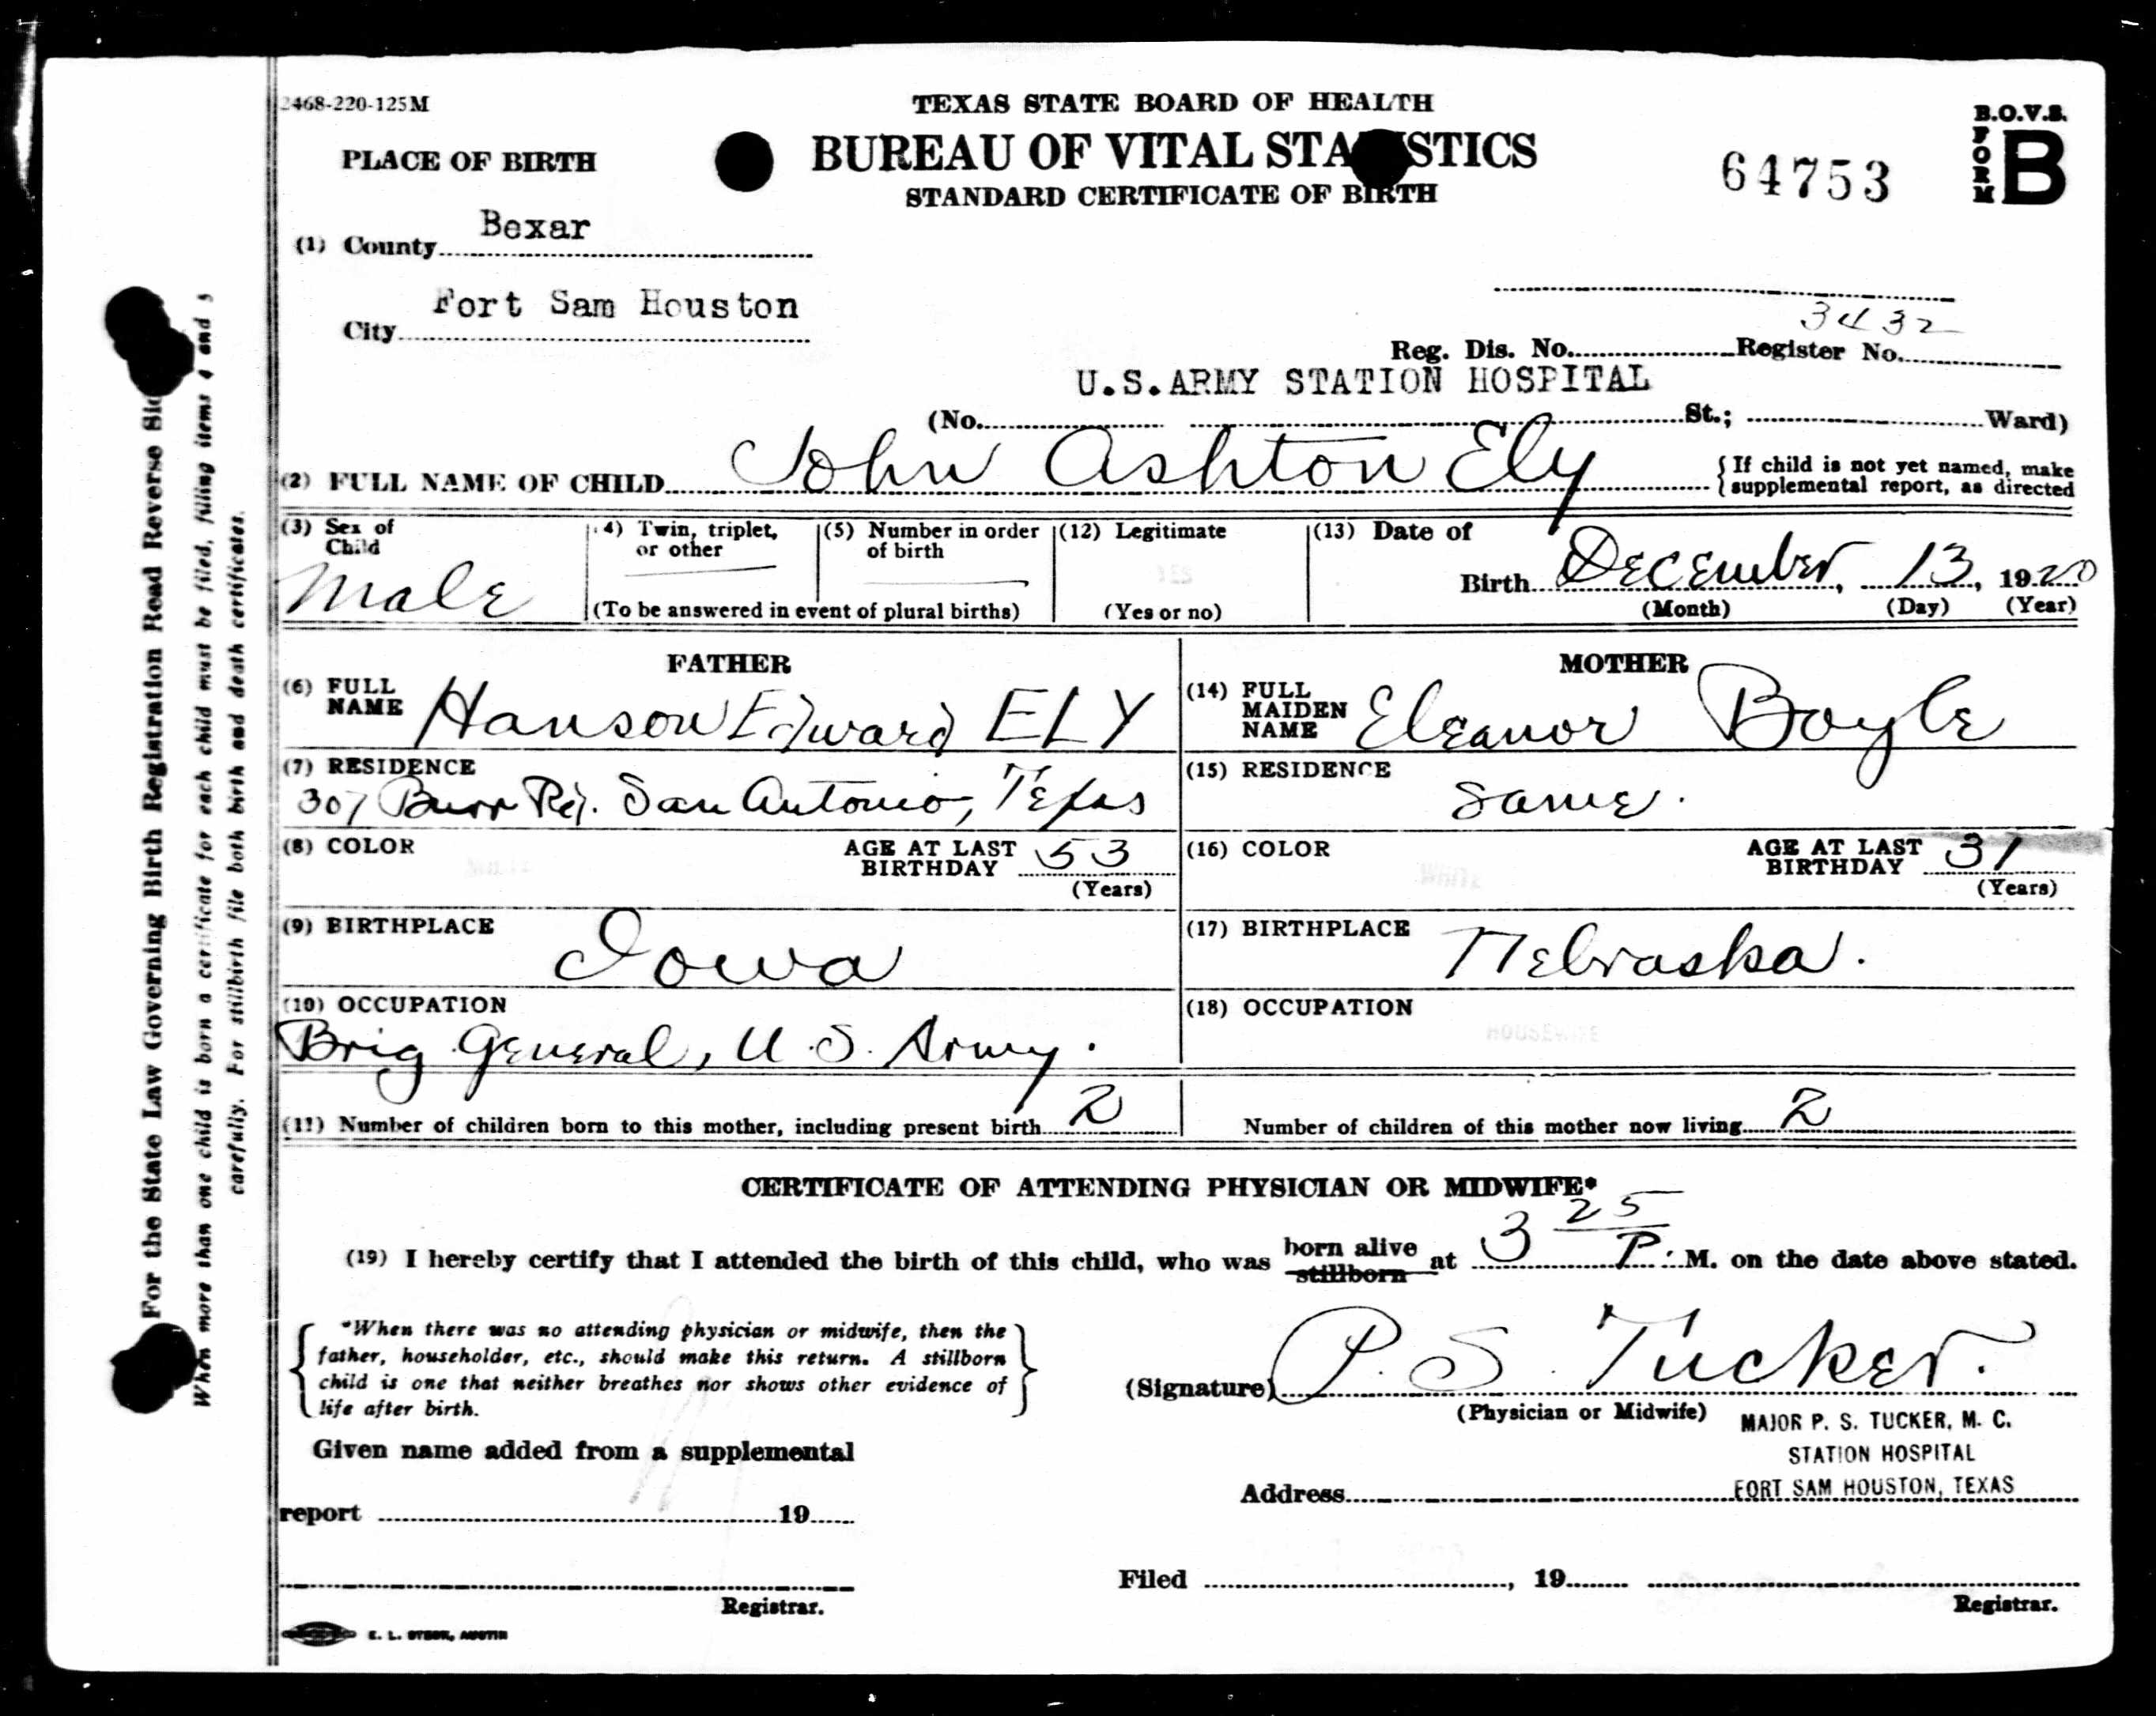 2468-220-125M
TEXAS STATE BOARD OF HEALTH
B.O.V.S.
FORM B
PLACE OF BIRTH
BUREAU OF VITAL STATISTICS
64753
STANDARD CERTIFICATE OF BIRTH
(1) County Bexar
City Fort Sam Houston
Reg. Dis. No. Register No. 3432
U.S.ARMY STATION HOSPITAL
(No. St.; Ward)
(2) FULL NAME OF CHILD John Ashton Ely
{If child is not yet named, make
supplemental report, as directed
(3) Sex of Child Male
(4) Twin, triplet, or other
(5) Number in order of birth
(To be answered in event of plural births)
(12) Legitimate YES
(Yes or no)
(13) Date of Birth December, 13, 1920
(Month) (Day) (Year)
FATHER
(6) FULL NAME Hanson Edward ELY
(7) RESIDENCE
307 Burr Rd. San Antonio, Texas
(8) COLOR WHITE AGE AT LAST BIRTHDAY 53
(Years)
(9) BIRTHPLACE Iowa
(10) OCCUPATION
Brig General, U.S. Army.
(11) Number of children born to this mother, including present birth 2
MOTHER
(14) FULL MAIDEN NAME Eleanor Boyle
(15) RESIDENCE same.
(16) COLOR WHITE AGE AT LAST BIRTHDAY 31
(Years)
(17) BIRTHPLACE Nebraska.
(18) OCCUPATION
HOUSEWIFE
Number of children of this mother now living 2
CERTIFICATE OF ATTENDING PHYSICIAN OR MIDWIFE*
(19) I hereby certify that I attended the birth of this child, who was born alive stillborn at 3 25 P. M. on the date above stated.
*When there was no attending physician or midwife, then the
father, householder, etc., should make this return. A stillborn
child is one that neither breathes nor shows other evidence of
life after birth.
(Signature) P. S. Tucker.
(Physician or Midwife)
MAJOR P. S. TUCKER, M. C.
STATION HOSPITAL
Address FORT SAM HOUSTON, TEXAS
Given name added from a supplemental
report 19
Registrar.
Filed , 19
Registrar.
E. L. STECK, AUSTIN
For the State Law Governing Birth Registration Read Reverse Side
When more than one child is born a certificate for each child must be filed, filling items 4 and 5
carefully. For stillbirth file both birth and death certificates.